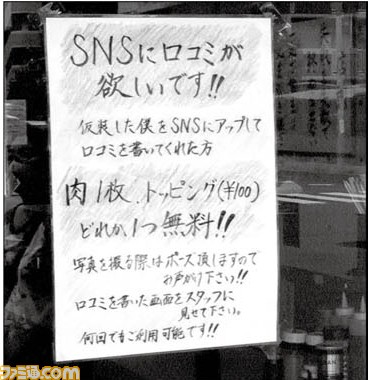 SNSに口コミが
欲しいです!!
仮装した僕をSNSにアップして
口コミを書いてくれた方
肉1枚、トッピング(¥100)
どれか1つ無料!!
写真を撮る際はポーズ頂しますので
お声がけ下さい!!
口コミを書いた画面をスタッフに
見せて下さい。
何回でもご利用可能です!!
ファミ通.com